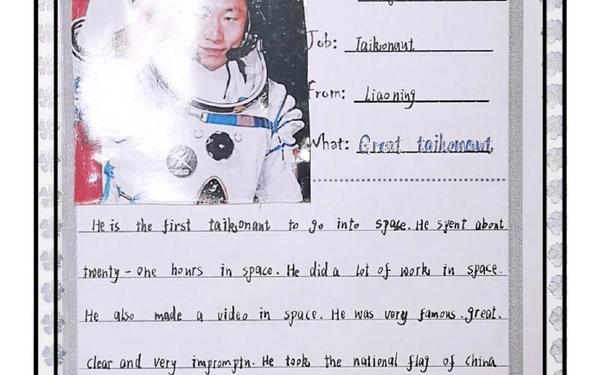 Job: Taikonaut
From: Liaoning
What: Great taikonaut
He is the first taikonaut to go into space. He spent about
twenty-one hours in space. He did a lot of work in space.
He also made a video in space. He was very famous.great.
clear and very impromptn. He took the national flag of China